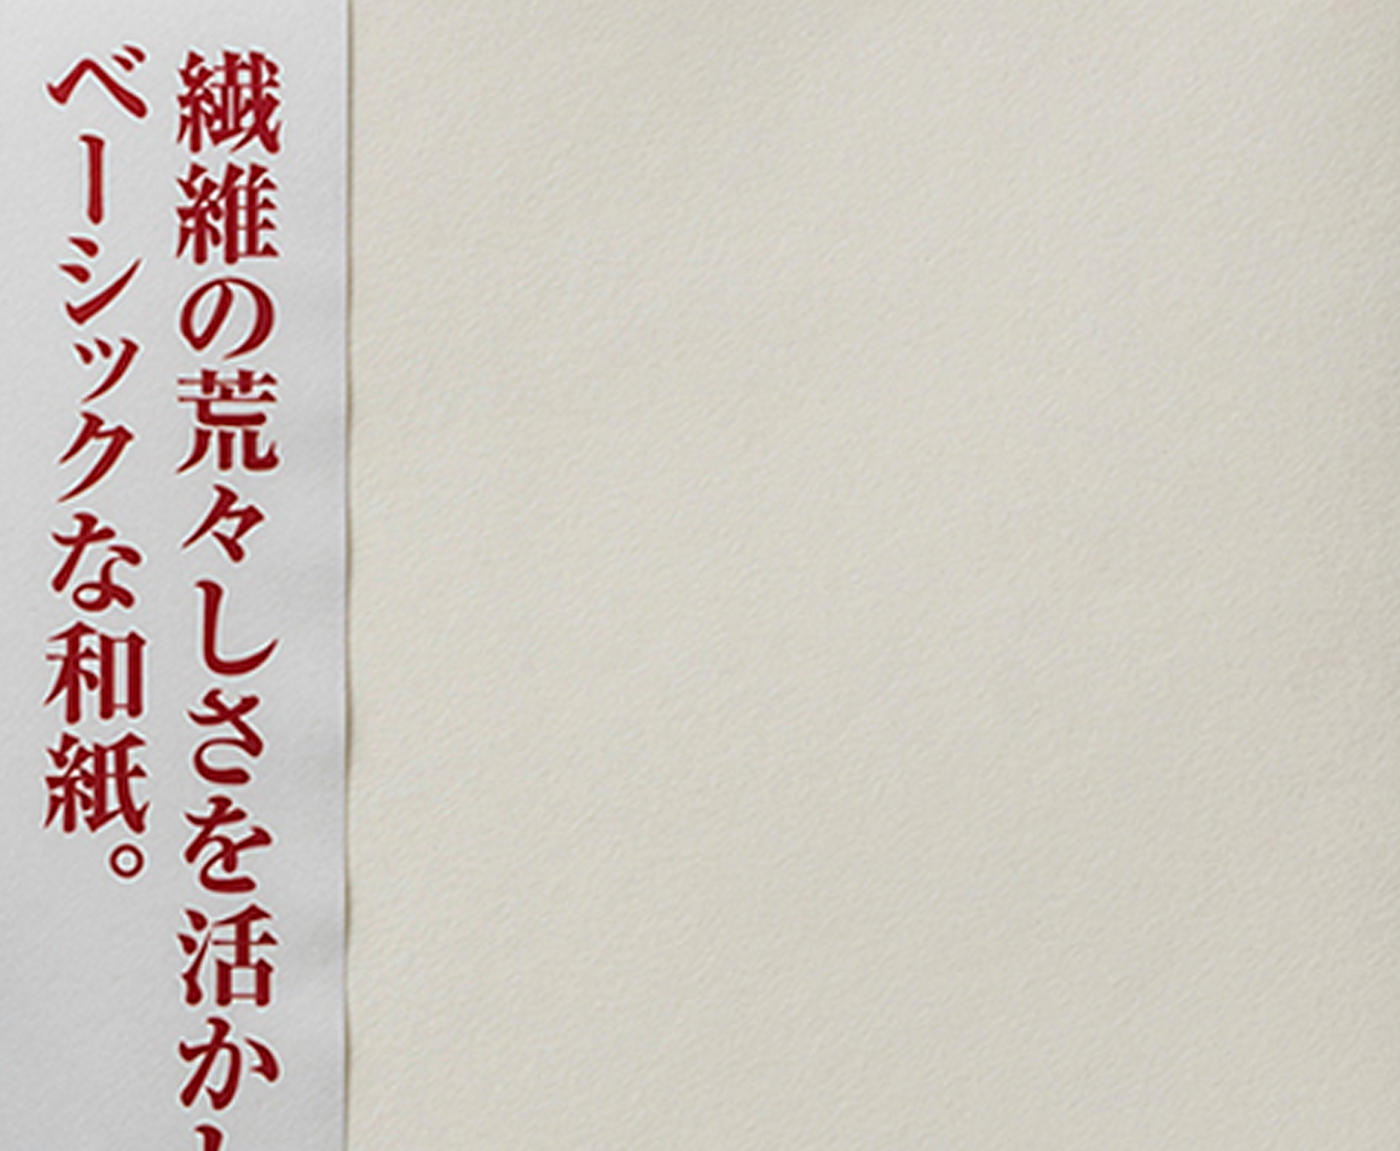 繊維の荒々しさを活か
ベーシックな和紙。